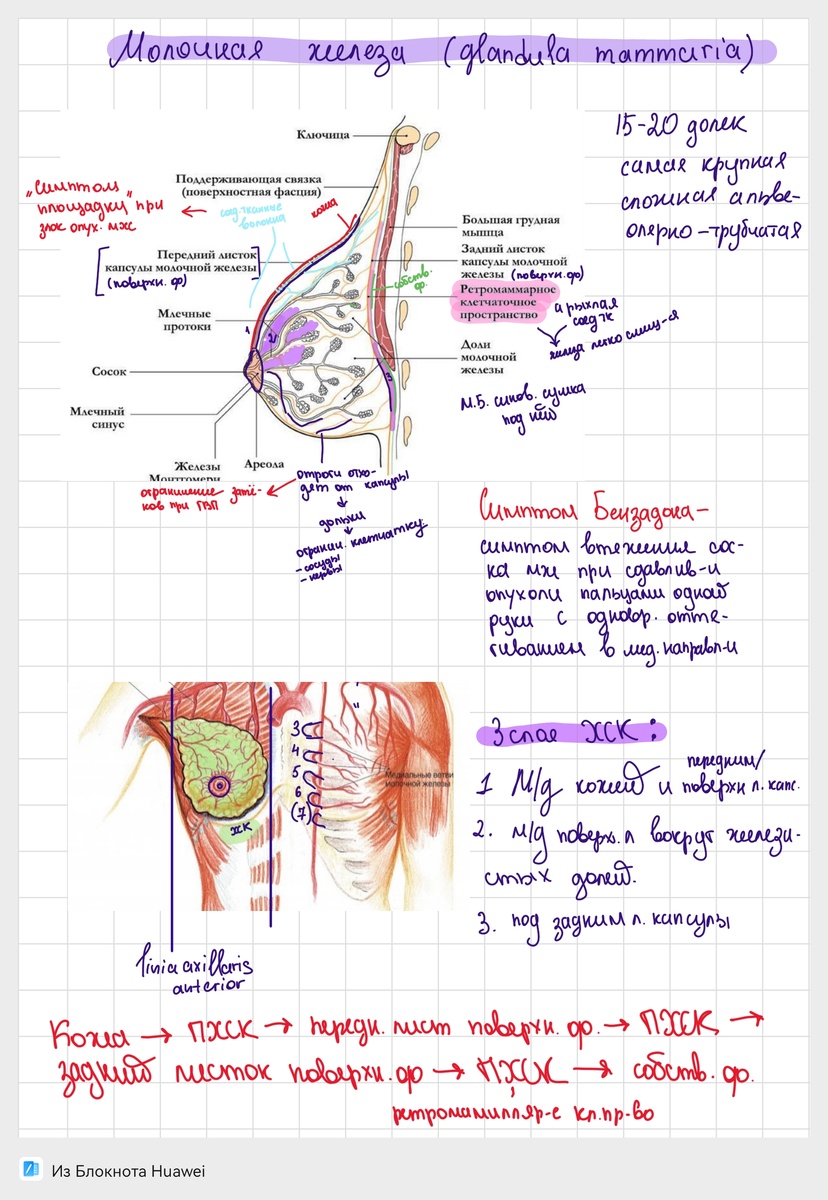 Молочная железа (glandula mammaria)
15-20 долек
самая крупная
сложная альве-
олярно-трубчатая
Ключица
Поддерживающая связка
(поверхностная фасция)
"Симптом
площадки" при
злок опух. мж
соед.тканные
волокна
кожа
Передний листок
капсулы молочной железы
(поверхн. ф)
Большая грудная
мышца
Задний листок
капсулы молочной
железы (поверхн. ф)
собств.
ф.
Ретромаммарное
клетчаточное
пространство
а рыхлая
соед.тк
железа легко смещ-я
Млечные
протоки
1
2
3
Доли
молочной
железы
Сосок
М.Б. синов. сумка
под ней
Млечный
синус
Железы
Монтгомери
Ареола
отроги отхо-
дят от капсулы
ограничение затё-
ков при ГВП
дольки
огранич. клетчатку:
- сосуды
- нервы
Симптом Бензадона-
симптом втяжения сос-
ка мж при сдавлив-и
опухоли пальцами одной
руки с одновр. оття-
гиванием в мед. направл-и
3
4
5
6
(7)
Медиальные ветви
молочной железы
жк
linia axillaris
anterior
3 слоя ЖК:
1 М/д кожей и передним/
поверхн л. капс.
2. м/д поверх. л вокруг желези-
стых долей.
3. под задним л. капсулы
Кожа → ПЖК → передн. лист поверхн. ф. → ПЖК →
задний листок поверхн. ф → ПЖК → собств. ф.
ретромамилляр-е кл. пр-во
Из Блокнота Huawei